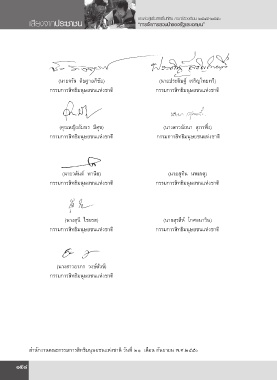 เสียงจากประชาชน
"การจัดการสวนป่าของรัฐและเอกชน"
(นายจรัล ดิษฐาอภิชัย)
(นายประดิษฐ์ เจริญไทยทวี)
กรรมการสิทธิมนุษยชนแห่งชาติ
กรรมการสิทธิมนุษยชนแห่งชาติ
(คุณหญิงอัมพร มีศุข)
(นางสาวนัยนา สุภาพึ่ง)
กรรมการสิทธิมนุษยชนแห่งชาติ
กรรมการสิทธิมนุษยชนแห่งชาติ
(นายวสันต์ พานิช)
(นายสุทิน นพเกตุ)
กรรมการสิทธิมนุษยชนแห่งชาติ
กรรมการสิทธิมนุษยชนแห่งชาติ
(นางสุนี ไชยรส)
(นายสุรสีห์ โกศลนาวิน)
กรรมการสิทธิมนุษยชนแห่งชาติ
กรรมการสิทธิมนุษยชนแห่งชาติ
(นางสาวอาภร วงษ์สังข์)
กรรมการสิทธิมนุษยชนแห่งชาติ
สำนักงานคณะกรรมการสิทธิมนุษยชนแห่งชาติ วันที่ ๒๑ เดือน กันยายน พ.ศ.๒๕๕๐